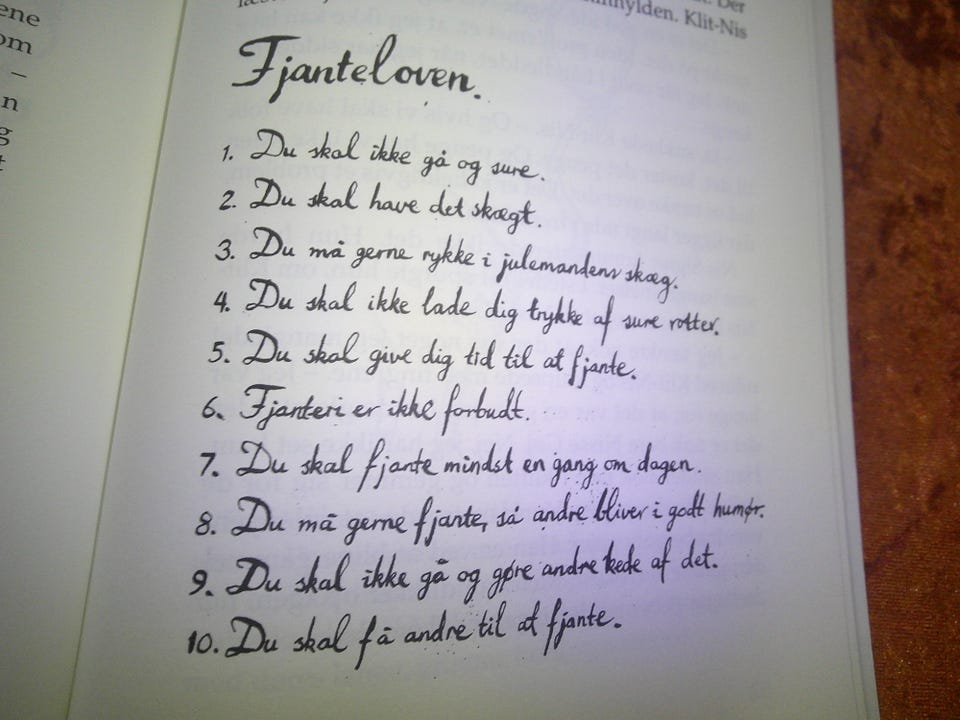 ene
om
–
n
g
t
Der
Klit-Nis
Fjanteloven.
1. Du skal ikke gå og sure.
2. Du skal have det skægt.
3. Du må gerne rykke i julemandens skæg.
4. Du skal ikke lade dig trykke af sure rotter.
5. Du skal give dig tid til at fjante.
6. Fjanteri er ikke forbudt.
7. Du skal fjante mindst en gang om dagen.
8. Du må gerne fjante, så andre bliver i godt humør.
9. Du skal ikke gå og gøre andre kede af det.
10. Du skal få andre til at fjante.